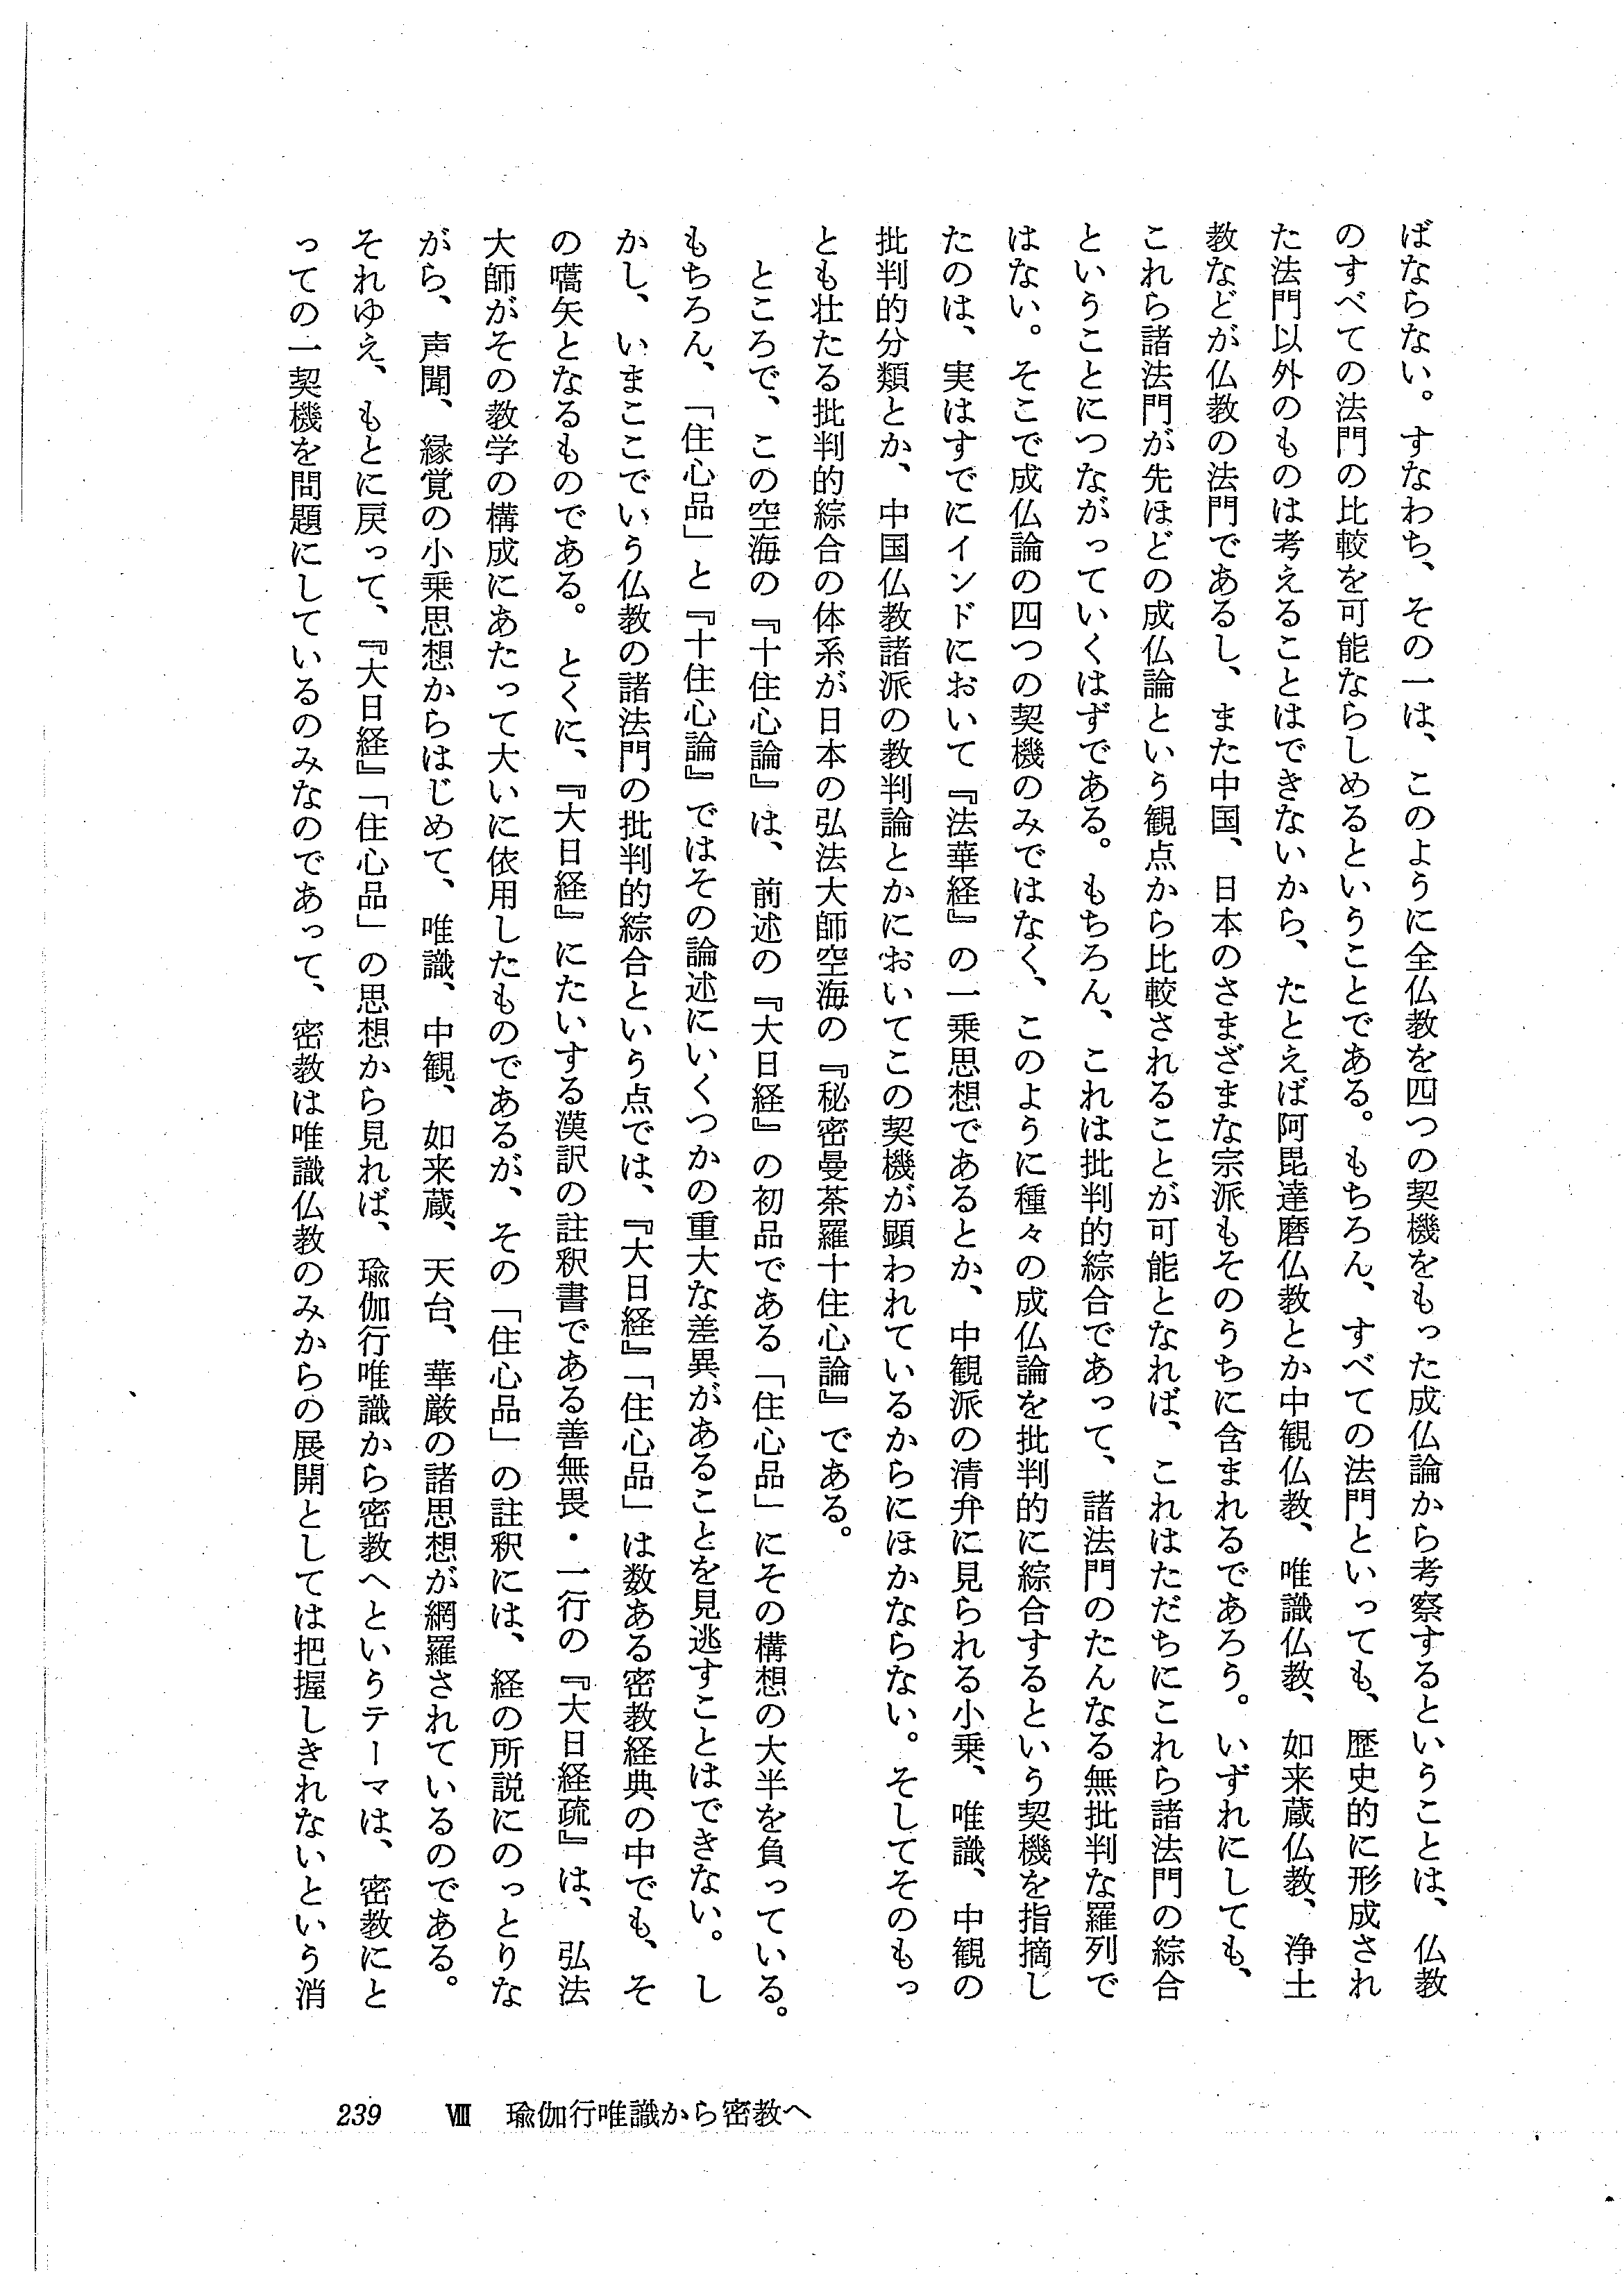 ばならない。すなわち、その一は、このように全仏教を四つの契機をもった成仏論から考察するということは、仏教
のすべての法門の比較を可能ならしめるということである。もちろん、すべての法門といっても、歴史的に形成され
た法門以外のものは考えることはできないから、たとえば阿毘達磨仏教とか中観仏教、唯識仏教、如来蔵仏教、浄土
教などが仏教の法門であるし、また中国、日本のさまざまな宗派もそのうちに含まれるであろう。いずれにしても、
これら諸法門が先ほどの成仏論という観点から比較されることが可能となれば、これはただちにこれら諸法門の綜合
ということにつながっていくはずである。もちろん、これは批判的綜合であって、諸法門のたんなる無批判な羅列で
はない。そこで成仏論の四つの契機のみではなく、このように種々の成仏論を批判的に綜合するという契機を指摘し
たのは、実はすでにインドにおいて『法華経』の一乗思想であるとか、中観派の清弁に見られる小乗、唯識、中観の
批判的分類とか、中国仏教諸派の教判論とかにおいてこの契機が顕われているからにほかならない。そしてそのもっ
とも壮たる批判的綜合の体系が日本の弘法大師空海の『秘密曼荼羅十住心論』である。
ところで、この空海の『十住心論』は、前述の『大日経』の初品である「住心品」にその構想の大半を負っている。
もちろん、「住心品」と『十住心論』ではその論述にいくつかの重大な差異があることを見逃すことはできない。し
かし、いまここでいう仏教の諸法門の批判的綜合という点では、『大日経』「住心品」は数ある密教経典の中でも、そ
の嚆矢となるものである。とくに、『大日経』にたいする漢訳の註釈書である善無畏・一行の『大日経疏』は、弘法
大師がその教学の構成にあたって大いに依用したものであるが、その「住心品」の註釈には、経の所説にのっとりな
がら、声聞、縁覚の小乗思想からはじめて、唯識、中観、如来蔵、天台、華厳の諸思想が網羅されているのである。
それゆえ、もとに戻って、『大日経』「住心品」の思想から見れば、瑜伽行唯識から密教へというテーマは、密教にと
っての一契機を問題にしているのみなのであって、密教は唯識仏教のみからの展開としては把握しきれないという消
239 Ⅷ 瑜伽行唯識から密教へ